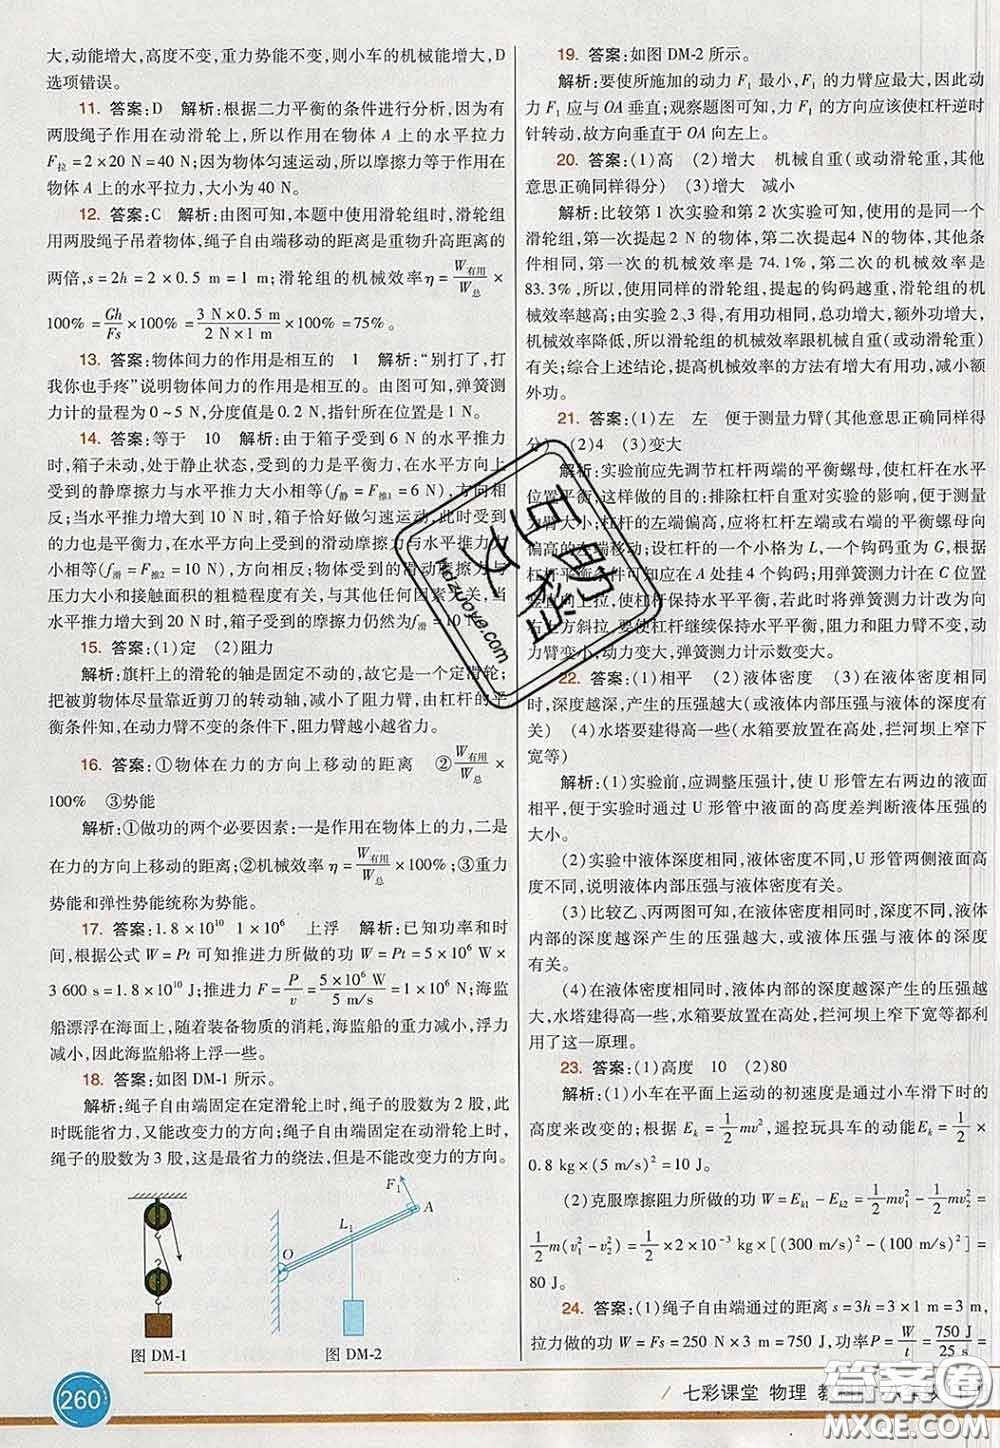 大,动能增大,高度不变,重力势能不变,则小车的机械能增大,D
选项错误。
11. 答案:D 解析:根据二力平衡的条件进行分析,因为有
两股绳子作用在动滑轮上,所以作用在物体 A 上的水平拉力
F拉=2×20 N=40 N;因为物体匀速运动,所以摩擦力等于作用在
物体 A 上的水平拉力,大小为 40 N。
12. 答案:C 解析:由图可知,本题中使用滑轮组时,滑轮组
用两股绳子吊着物体,绳子自由端移动的距离是重物升高距离的
两倍,s=2h=2×0.5 m=1 m;滑轮组的机械效率 η=W有用/W总×
100%=Gh/Fs×100%=3 N×0.5 m/2 N×1 m×100%=75%。
13. 答案:物体间力的作用是相互的 1 解析:“别打了,打
我你也手疼”说明物体间力的作用是相互的。由图可知,弹簧测
力计的量程为 0~5 N,分度值是 0.2 N,指针所在位置是 1 N。
14. 答案:等于 10 解析:由于箱子受到 6 N 的水平推力
时,箱子未动,处于静止状态,受到的力是平衡力,在水平方向上
受到的静摩擦力与水平推力大小相等(f静=F推1=6 N),方向相
反;当水平推力增大到 10 N 时,箱子恰好做匀速运动,此时受到
的力也是平衡力,在水平方向上受到的滑动摩擦力与水平推力大
小相等(f滑=F推2=10 N),方向相反;物体受到的滑动摩擦力与
压力大小和接触面积的粗糙程度有关,与其他任何因素无关,水平
推力增大到 20 N 时,箱子受到的摩擦力仍然为 f滑=10 N。
15. 答案:(1)定 (2)阻力
解析:旗杆上的滑轮的轴是固定不动的,故它是一个定滑轮;
把被剪物体尽量靠近剪刀的转动轴,减小了阻力臂,由杠杆的平
衡条件知,在动力臂不变的条件下,阻力臂越小越省力。
16. 答案:①物体在力的方向上移动的距离 ②W有用/W总×
100% ③势能
解析:①做功的两个必要因素:一是作用在物体上的力,二是
在力的方向上移动的距离;②机械效率 η=W有用/W总×100%;③重力
势能和弹性势能统称为势能。
17. 答案:1.8×10¹⁰ 1×10⁶ 上浮 解析:已知功率和时
间,根据公式 W=Pt 可知推进力所做的功 W=Pt=5×10⁶ W×
3 600 s=1.8×10¹⁰ J;推进力 F=P/v=5×10⁶ W/5 m/s=1×10⁶ N;海监
船漂浮在海面上,随着装备物质的消耗,海监船的重力减小,浮力
减小,因此海监船将上浮一些。
18. 答案:如图 DM-1 所示。
解析:绳子自由端固定在定滑轮上时,绳子的股数为 2 股,此
时既能省力,又能改变力的方向;绳子自由端固定在动滑轮上时,
绳子的股数为 3 股,这是最省力的绕法,但是不能改变力的方向。
F₁
A
L₁
O
图 DM-1
图 DM-2
19. 答案:如图 DM-2 所示。
解析:要使所施加的动力 F₁ 最小,F₁ 的力臂应最大,因此动
力 F₁ 应与 OA 垂直;观察题图可知,力 F₁ 的方向应该使杠杆逆时
针转动,故方向垂直于 OA 向左上。
20. 答案:(1)高 (2)增大 机械自重(或动滑轮重,其他
意思正确同样得分) (3)增大 减小
解析:比较第 1 次实验和第 2 次实验可知,使用的是同一个
滑轮组,第一次提起 2 N 的物体,第二次提起4 N 的物体,其他条
件相同,第一次的机械效率是 74.1%,第二次的机械效率是
83.3%,所以,使用同样的滑轮组,提起的钩码越重,滑轮组的机
械效率越高;由实验 2、3 得,有用功相同,总功增大,额外功增大,
机械效率降低,所以滑轮组的机械效率跟机械自重(或动滑轮重)
有关;综合上述结论,提高机械效率的方法有增大有用功,减小额
外功。
21. 答案:(1)左 左 便于测量力臂(其他意思正确同样得
分) (2)4 (3)变大
解析:实验前应先调节杠杆两端的平衡螺母,使杠杆在水平
位置平衡,这样做的目的:排除杠杆自重对实验的影响,便于测量
力臂大小;杠杆的左端偏高,应将杠杆左端或右端的平衡螺母向
偏高的左端移动;设杠杆的一个小格为 L,一个钩码重为 G,根据
杠杆平衡条件可知应在 A 处挂 4 个钩码;用弹簧测力计在 C 位置
竖直向上拉,使杠杆保持水平平衡,若将弹簧测力计改为向
右上方斜拉,要使杠杆继续保持水平平衡,阻力和阻力臂不变,动
力臂变小,动力变大,弹簧测力计示数变大。
22. 答案:(1)相平 (2)液体密度 (3)在液体密度相同
时,深度越深,产生的压强越大(或液体内部压强与液体的深度有
关) (4)水塔要建得高一些(水箱要放置在高处,拦河坝上窄下
宽等)
解析:(1)实验前,应调整压强计,使 U 形管左右两边的液面
相平,便于实验时通过 U 形管中液面的高度差判断液体压强的
大小。
(2)实验中液体深度相同,液体密度不同,U 形管两侧液面高
度不同,说明液体内部压强与液体密度有关。
(3)比较乙、丙两图可知,在液体密度相同时,深度不同,液体
内部的深度越深产生的压强越大,或液体压强与液体的深度
有关。
(4)在液体密度相同时,液体内部的深度越深产生的压强越
大,水塔建得高一些,水箱要放置在高处,拦河坝上窄下宽等都利
用了这一原理。
23. 答案:(1)高度 10 (2)80
解析:(1)小车在平面上运动的初速度是通过小车滑下时的
高度来改变的;根据 Eₖ=1/2mv²,遥控玩具车的动能 Eₖ=1/2×
0.8 kg×(5 m/s)²=10 J。
(2)克服摩擦阻力所做的功 W=Eₖ₁−Eₖ₂=1/2mv₁²−1/2mv₂²=
1/2m(v₁²−v₂²)=1/2×2×10⁻³ kg×[(300 m/s)²−(100 m/s)²]=
80 J。
24. 答案:(1)绳子自由端通过的距离 s=3h=3×1 m=3 m,
拉力做的功 W=Fs=250 N×3 m=750 J,功率 P=W/t=750 J/25 s=
260
七彩课堂 物理
答案圈
MXQE.COM